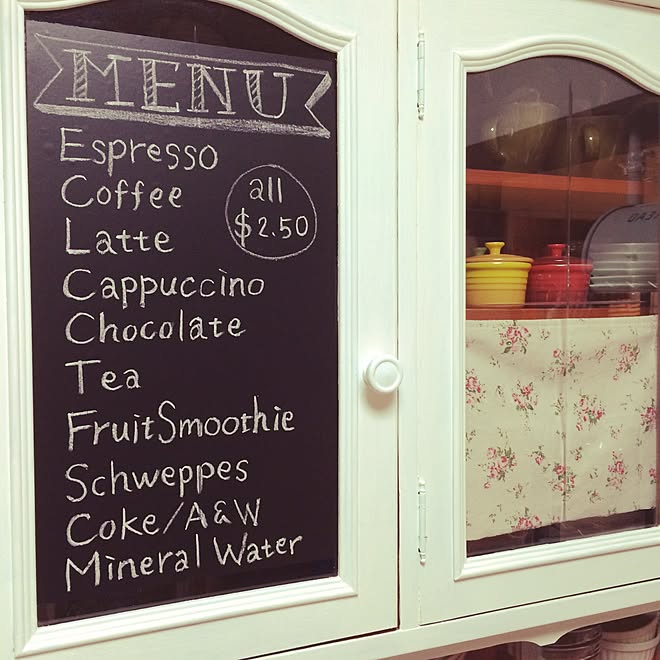 MENU
Espresso
Coffee
all
$2.50
Latte
Cappuccino
Chocolate
Tea
Fruit Smoothie
Schweppes
Coke/A&W
Mineral Water